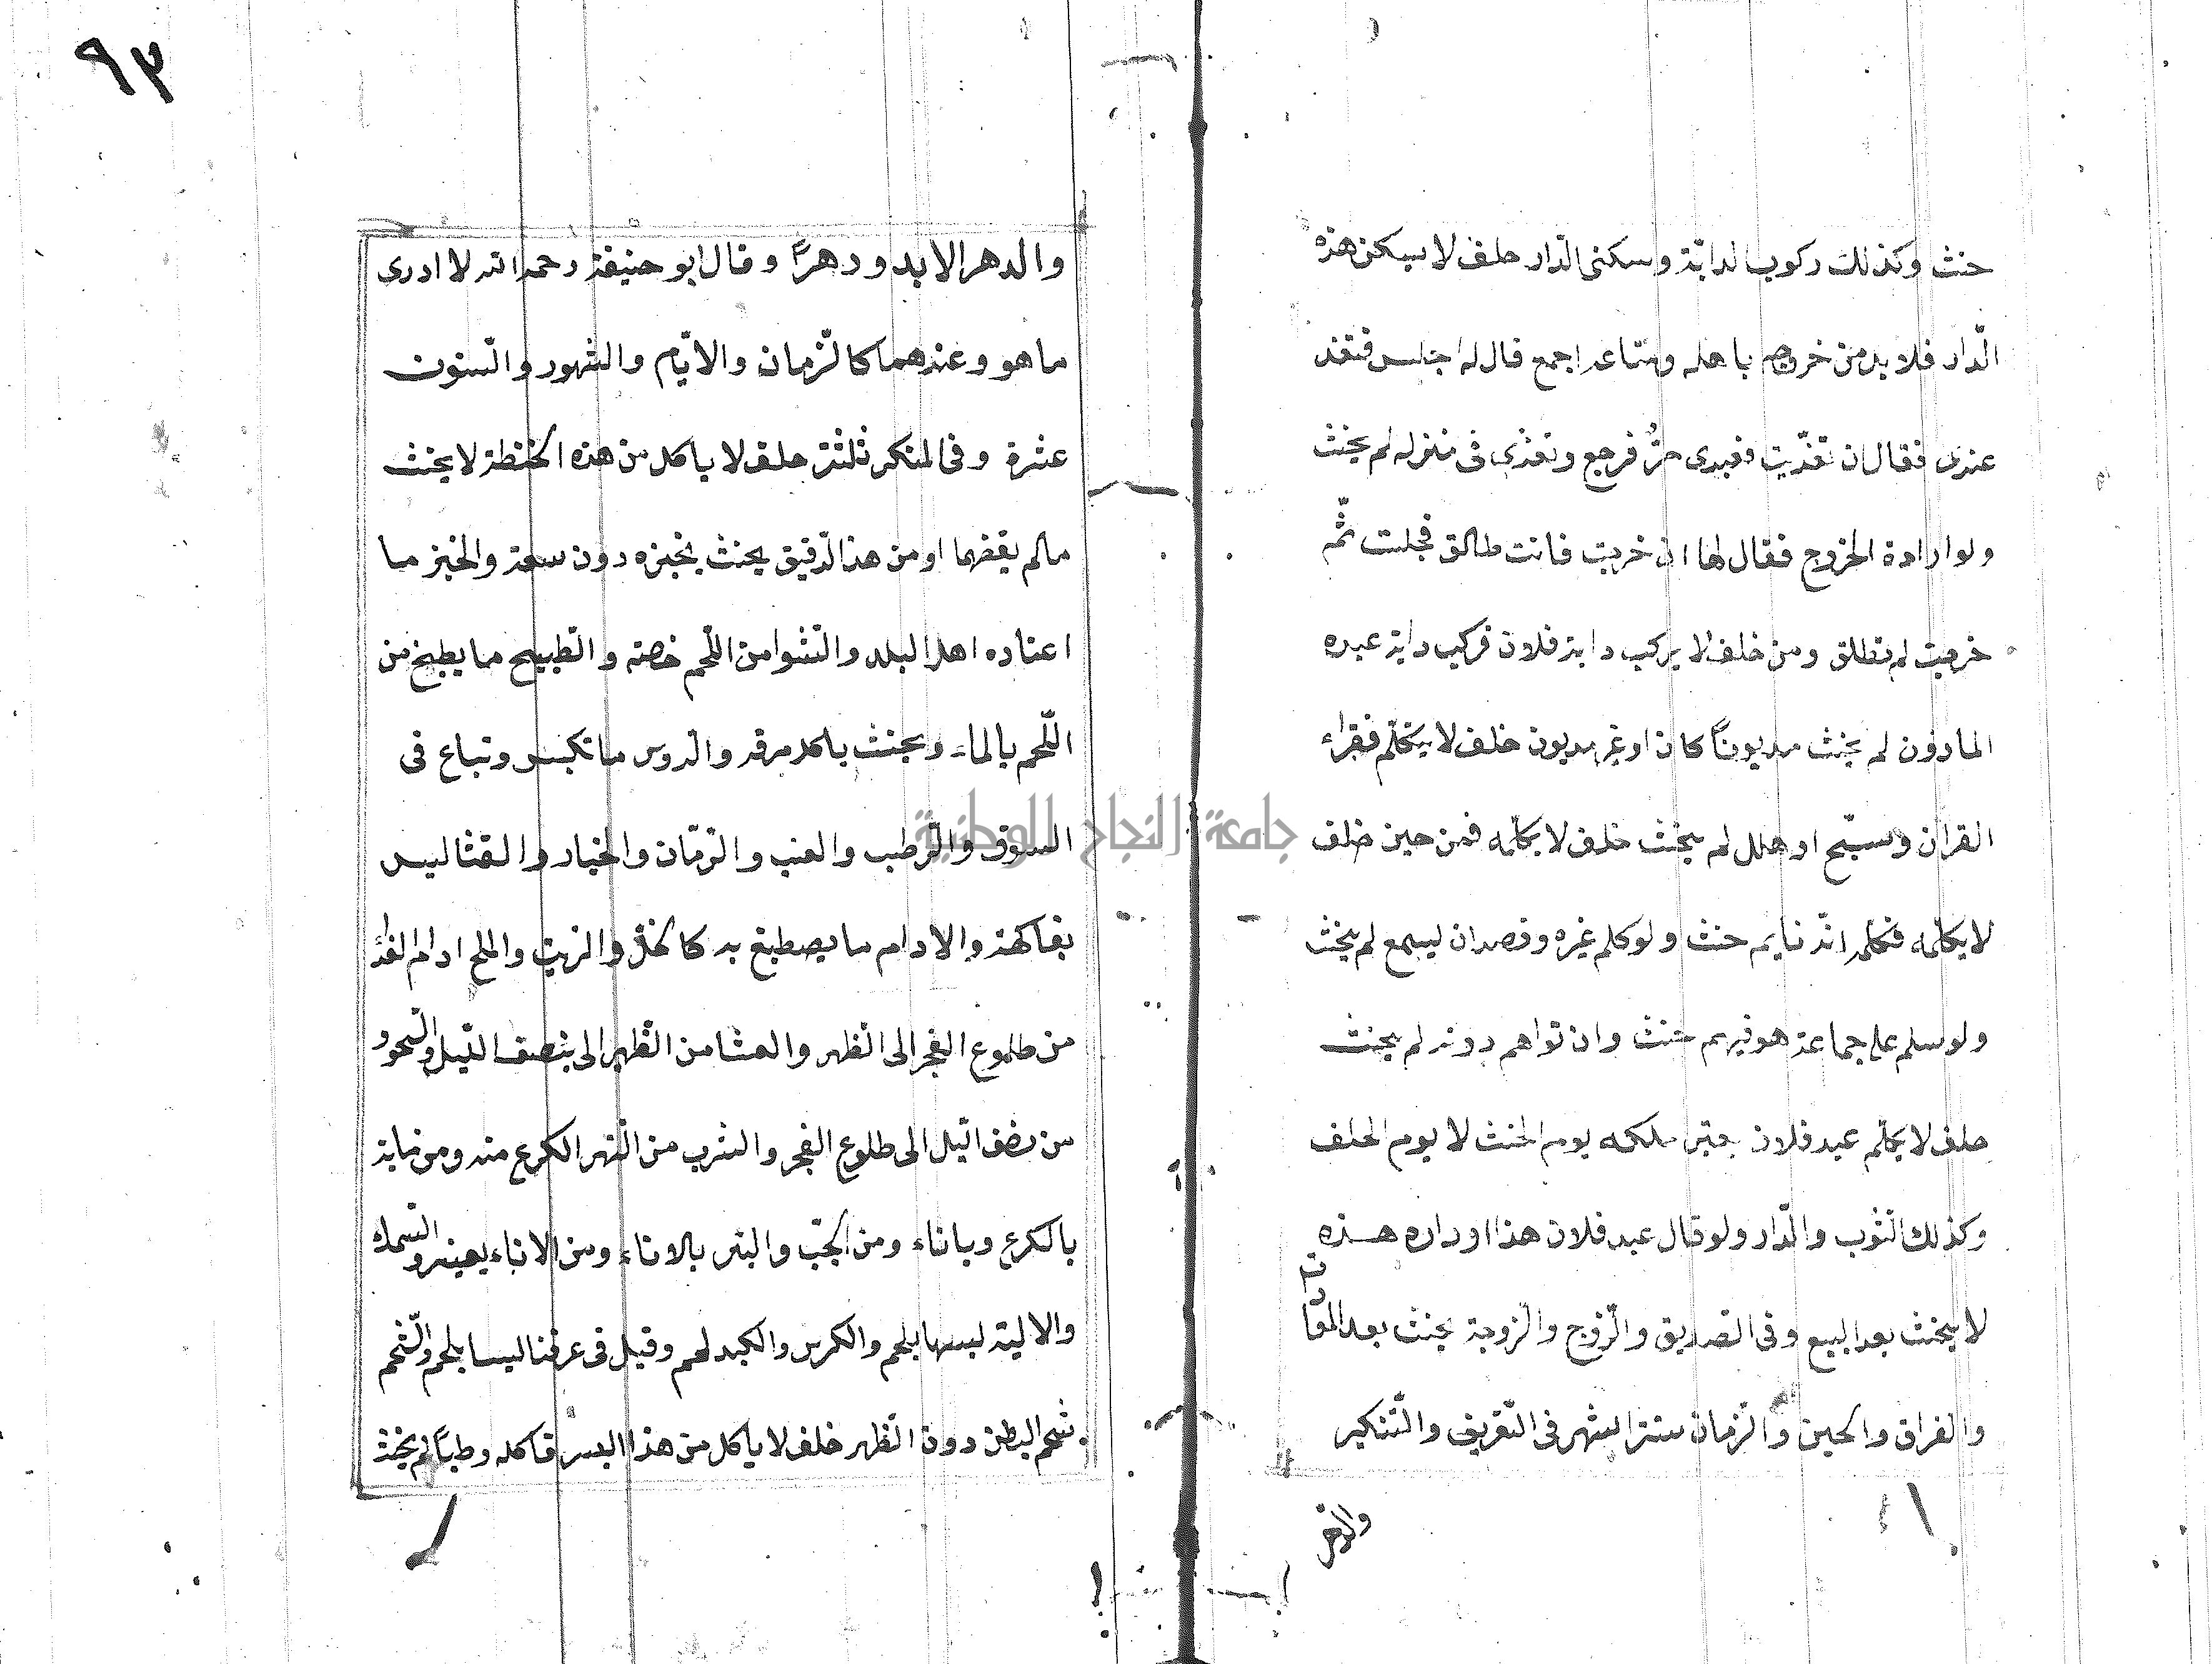 ٩٣
حنث وكذلك ركوب الدابّة وسكنى الدّار حلف لا يسكن هذه
الدّار فلا بد من خروجه باهله ومتاعه اجمع قال له اجلس فتغد
عندى فقال ان تغدّيت فعبدى حرٌّ فرجع وتغدى فى منزله لم يحنث
ولو ارادة الخروج فقال لها ان خرجت فانت طالق فجلست ثمّ
خرجت لم تطلق ومن حلف لا يركب دابة فلان فركب دابة عبده
الماذون لم يحنث مديوناً كان او غير مديون حلف لا يتكلّم فقراء
القران وسبّح او هلل لم يحنث حلف لا يكلّمه فمن حين حلف
لا يكلّمه فكلمه انّه نايم حنث ولو كلم غيره وقصد ان ليسمع لم يحنث
ولو سلم على جماعة هو فيهم حنث وان نواهم دونه لم يحنث
حلف لا يكلّم عبد فلان يعتبر ملكه يوم الحنث لا يوم الحلف
وكذلك الثوب والدّار ولو قال عبد فلان هذا او داره هذه
لا يحنث بعد البيع وفى الصديق والزّوج والزّوجة يحنث بعد المعادات
والفراق والحين والزّمان ستة اشهر فى التّعريف والتّنكير
والدّهر
والدهر الابد ودهراً وقال ابو حنيفة رحمه الله لا ادرى
ما هو وعندهما كالزّمان والايّام والشهور والسّنون
عشرة وفى المنكر ثلثة حلف لا ياكل من هذه الحنطة لا يحنث
مالم يقضمها او من هذا الدّقيق يحنث بخبزه دون سفه والخبز ما
اعتاده اهل البلد والشّوا من اللّحم خاصة والطّبيخ ما يطبخ من
اللّحم بالماء ويحنث باكل مرقه والروس ما تكبس وتباع فى
السوق والرّطب والعنب والرّمّان والخيار والقثا ليس
بفاكهة والادام ما يصطبغ به كالخل والزيت والملح ادام الغدا
من طلوع الفجر الى الظهر والعشا من الظّهر الى نصف اللّيل والسّحور
من نصف الّيل الى طلوع الفجر والشرب من النّهر الكرع منه ومن مايه
بالكرع وباناء ومن الجبّ والبئر بالاناء ومن الاناء بعينه والسّمك
والالية ليسا بلحم والكرش والكبد لحم وقيل فى عرفنا ليسا بلحم والشّحم
شحم البطن دون الظهر حلف لا ياكل من هذا البسر فاكله رطباً لم يحنث
جامعة النجاح الوطنية